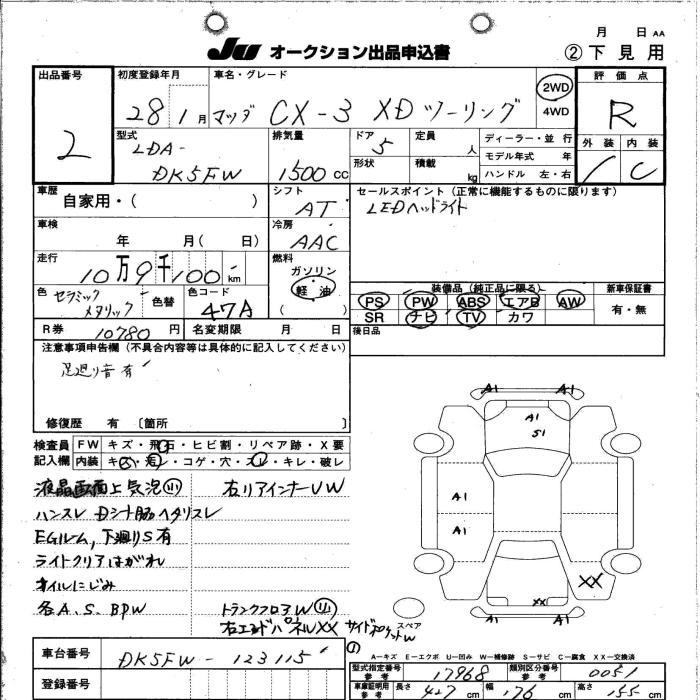 JU オークション出品申込書
月 日 AA
② 下見用
出品番号
2
初度登録年月
28 1月
車名・グレード
マツダ CX-3 XDツーリング
2WD
4WD
評価点
R
外装 内装
/ C
型式
LDA-
DK5FW
排気量
1500 cc
ドア 5
形状
定員 人
積載 kg
ディーラー・並行
モデル年式 年
ハンドル 左・右
車歴
自家用・( )
シフト
AT
セールスポイント (正常に機能するものに限ります)
LEDヘッドライト
車検
年 月( 日)
冷房
AAC
走行
10万9千100 km
燃料
ガソリン
軽油
( )
色 セラミック
メタリック
色替
色コード
47A
装備品 (純正品に限る)
PS PW ABS エアB AW
SR ナビ TV カワ
新車保証書
有・無
R券 10780 円
名変期限 月 日
後日品
注意事項申告欄 (不具合内容等は具体的に記入してください)
足廻り音有
修復歴 有 〔箇所 〕
検査員
記入欄
FW キズ・飛石・ヒビ割・リペア跡・X要
内装 キズ・汚レ・コゲ・穴・スレ・キレ・破レ
液晶画面上気泡小 右リアインナーUW
ハンスレ Dシート脇ヘタリスレ
EGルーム,下廻りS有
ライトクリアはがれ
オイルにじみ
各A.S.BPW トランクフロアW小
右エンドパネルXX サイド
スペア
の
A1 A1
A1
S1
A1
A1
XX
XX
A1 A1
A-キズ E-エクボ U-凹み W-補修跡 S-サビ C-腐食 XX-交換済
車台番号
DK5FW-123115
登録番号
型式指定番号
参考
17968
類別区分番号
参考
0051
車庫証明用
参考
長さ 427 cm 幅 176 cm 高さ 155 cm